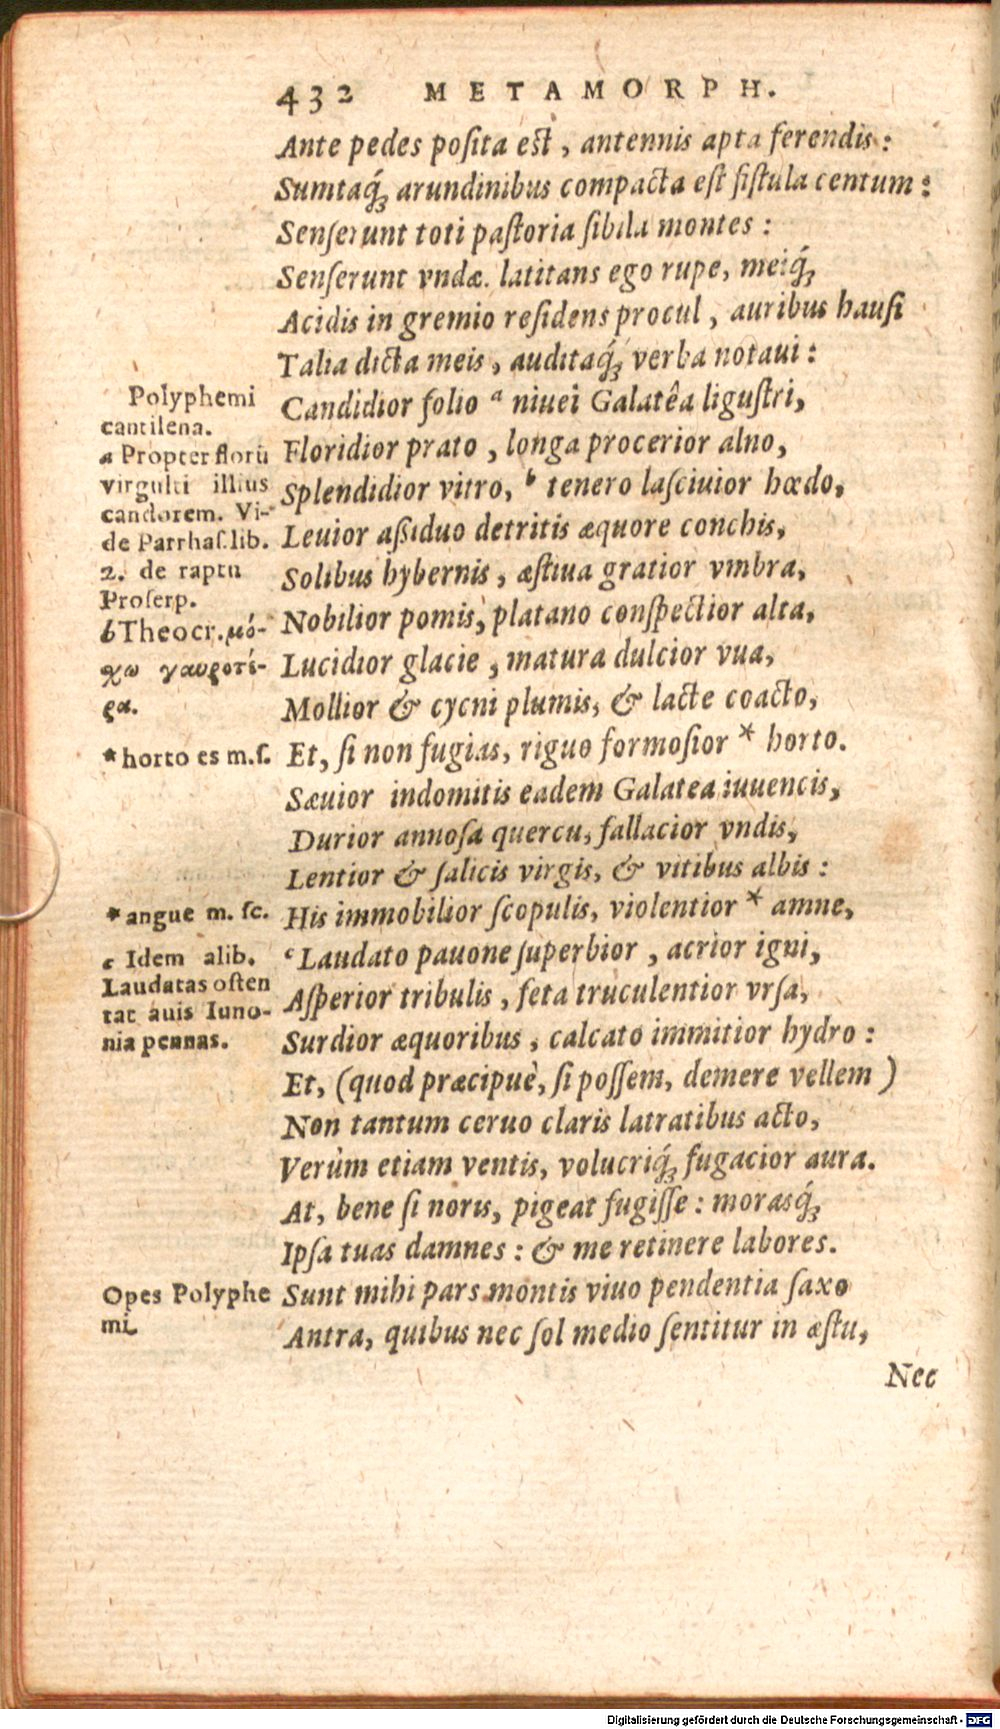 432 METAMORPH.
Ante pedes poſita eſt, antennis apta ferendis:
Sumtaq́ꝫ arundinibus compacta eſt fiſtula centum:
Senſerunt toti paſtoria ſibila montes:
Senſerunt vndæ. latitans ego rupe, meiq́ꝫ
Acidis in gremio reſidens procul, auribus hauſi
Talia dicta meis, auditaq́ꝫ verba notaui:
Candidior folio ᵃ niuei Galatêa liguſtri,
Floridior prato, longa procerior alno,
Splendidior vitro, ᵇ tenero laſciuior hœdo,
Leuior aſsiduo detritis æquore conchis,
Solibus hybernis, æſtiua gratior vmbra,
Nobilior pomis, platano conſpectior alta,
Lucidior glacie, matura dulcior vua,
Mollior & cycni plumis, & lacte coacto,
Et, ſi non fugias, riguo formoſior * horto.
Sæuior indomitis eadem Galatea iuuencis,
Durior annoſa quercu, fallacior vndis,
Lentior & ſalicis virgis, & vitibus albis:
His immobilior ſcopulis, violentior * amne,
ᶜ Laudato pauone ſuperbior, acrior igni,
Aſperior tribulis, feta truculentior vrſa,
Surdior æquoribus, calcato immitior hydro:
Et, (quod præcipuè, ſi poſſem, demere vellem)
Non tantum ceruo claris latratibus acto,
Verùm etiam ventis, volucriq́ꝫ fugacior aura.
At, bene ſi noris, pigeat fugiſſe: morasq́ꝫ
Ipſa tuas damnes: & me retinere labores.
Sunt mihi pars montis viuo pendentia ſaxo
Antra, quibus nec ſol medio ſentitur in æſtu,
Nec
Polyphemi
cantilena.
a Propter florũ
virgulti illius
candorem. Vi-
de Parrhaſ. lib.
2. de raptu
Proſerp.
b Theocr. μό-
χω γαυροτέ-
ρα.
* horto es m.ſ.
* angue m. ſc.
c Idem alib.
Laudatas oſten
tat auis Iuno-
nia pennas.
Opes Polyphe
mi.
Digitalisierung gefördert durch die Deutsche Forschungsgemeinschaft - DFG